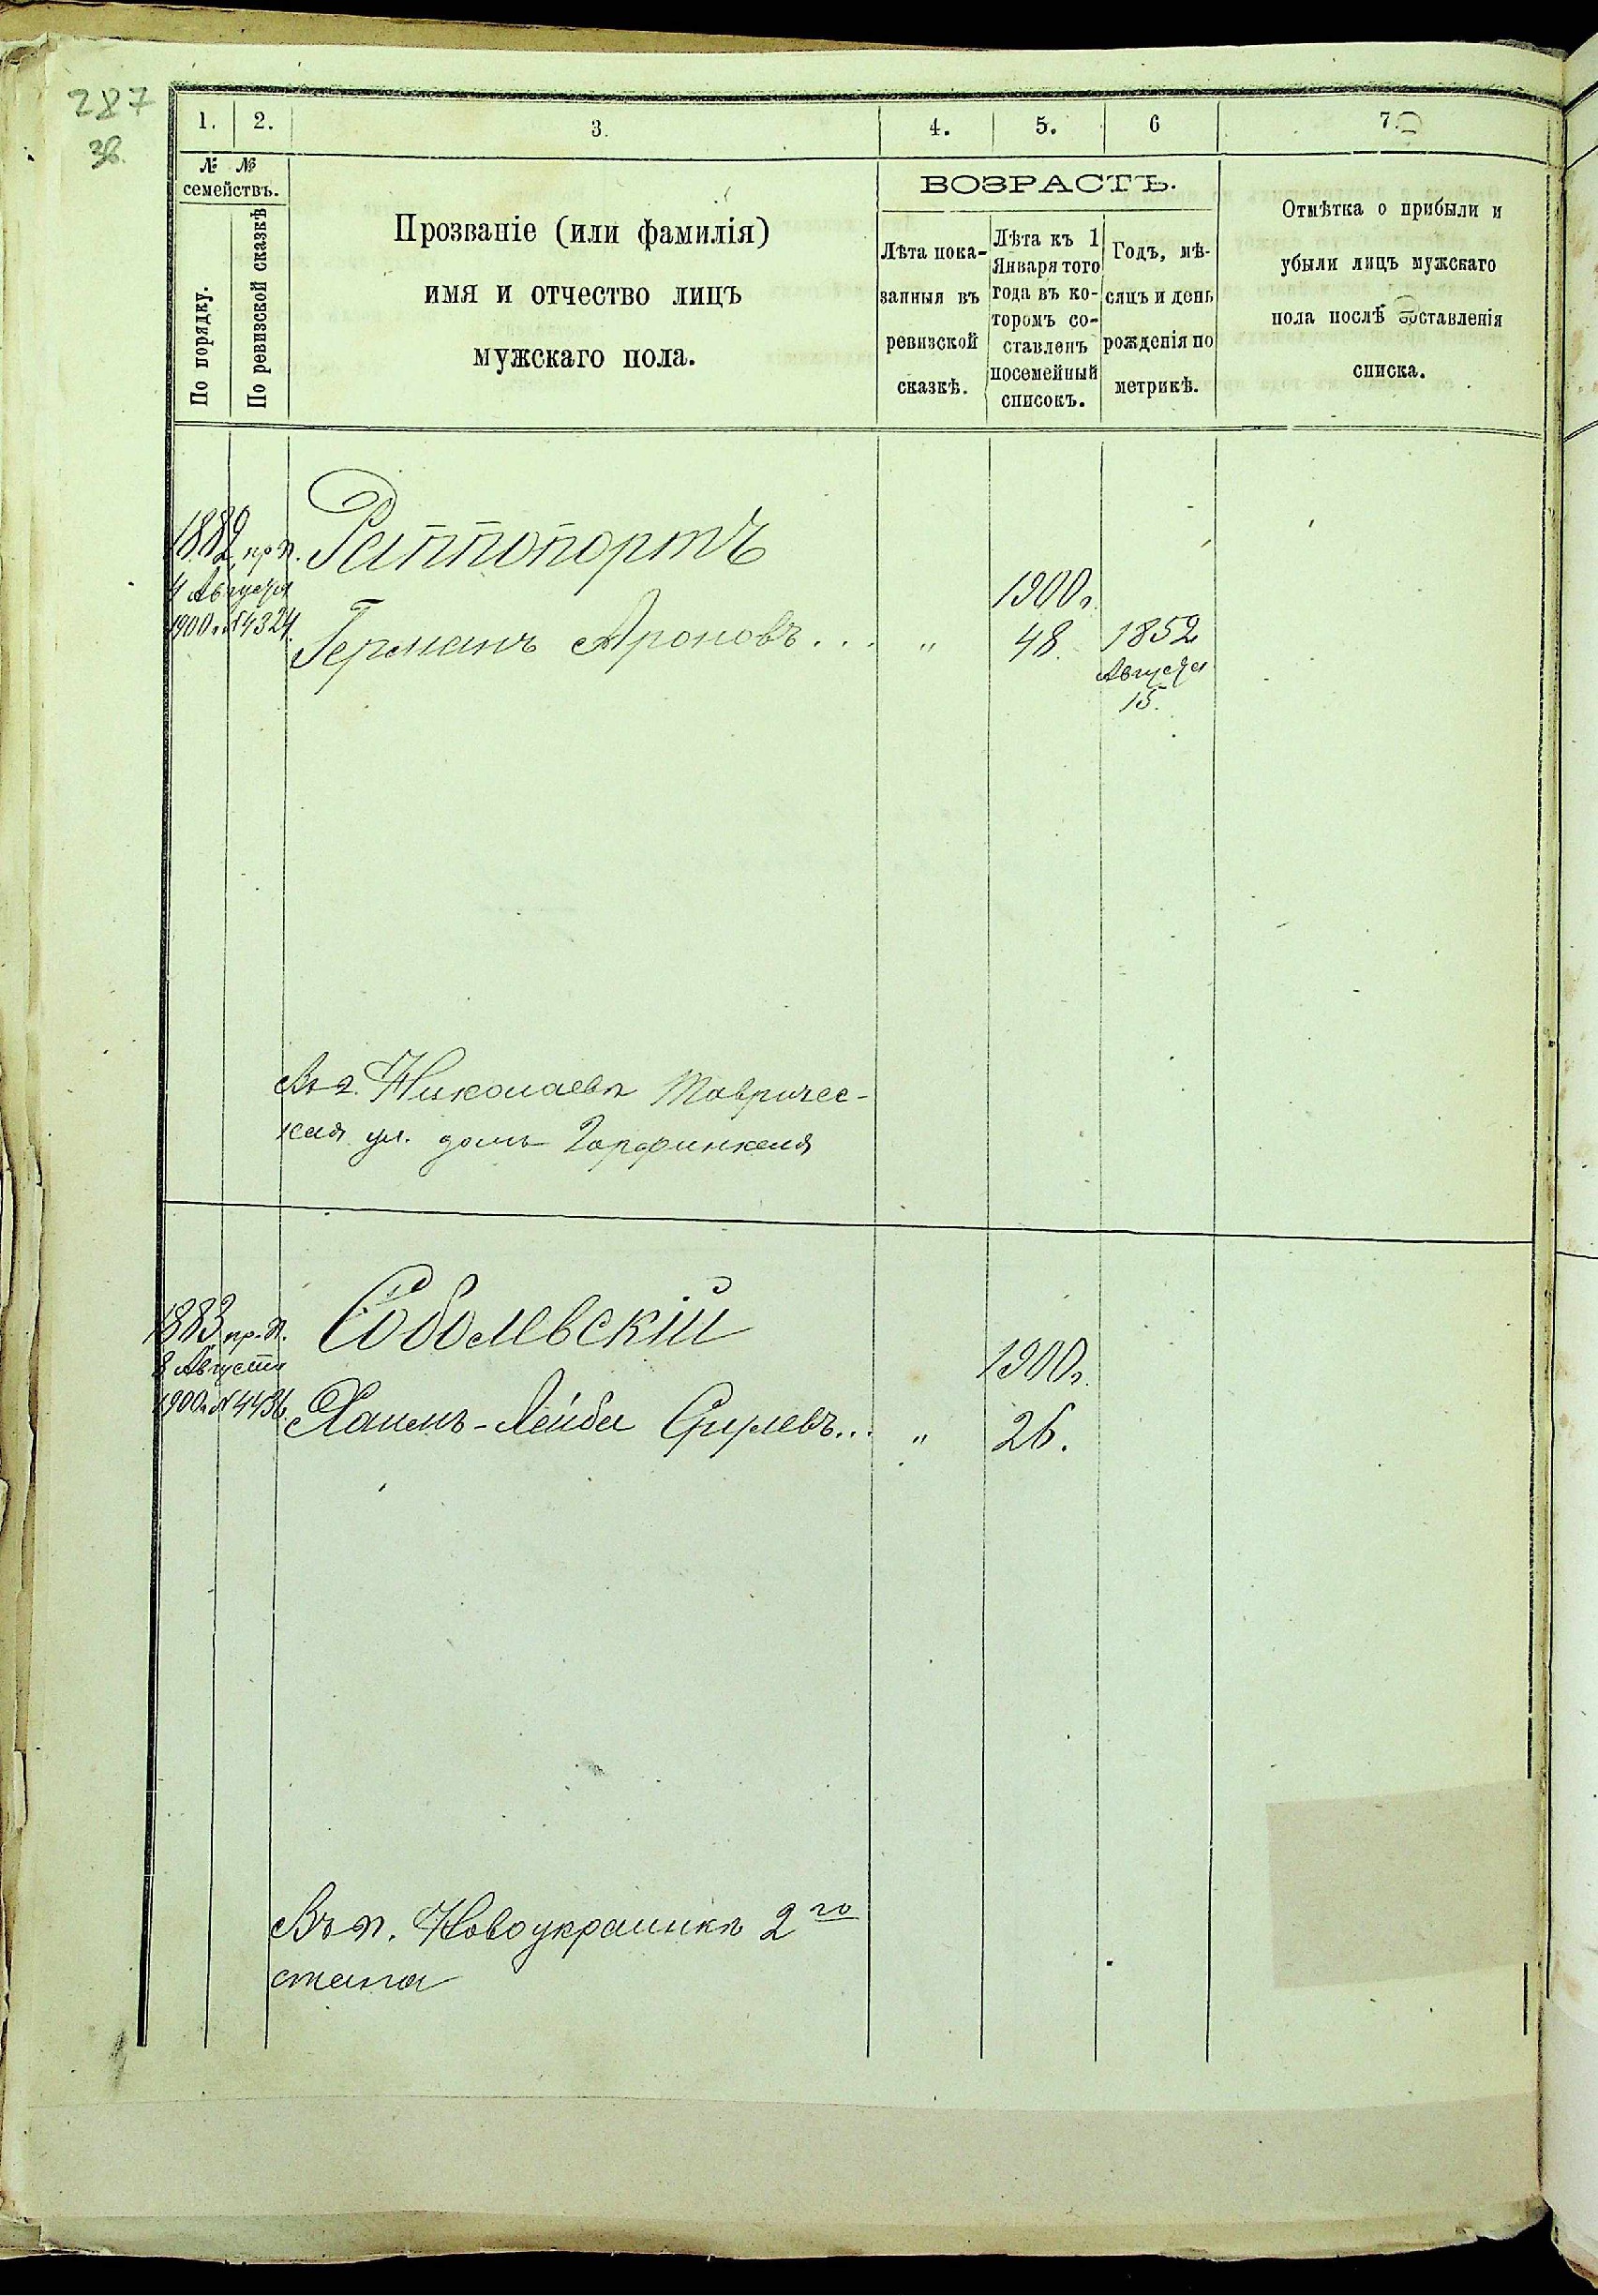 287
зв.
1. 2. 3. 4. 5. 6 7.
№ №
семействъ.
По порядку.
По ревизской сказкѣ
Прозваніе (или фамилія)
имя и отчество лицъ
мужскаго пола.
ВОЗРАСТЪ.
Лѣта пока-
занныя въ
ревизской
сказкѣ.
Лѣта къ 1
Января того
года въ ко-
торомъ со-
ставленъ
посемейный
списокъ.
Годъ, мѣ-
сяцъ и день
рожденія по
метрикѣ.
Отмѣтка о прибыли и
убыли лицъ мужскаго
пола послѣ составленія
списка.
1882 пр. п.
4 Августа
1900 г. № 4324.
Раппопортъ
Германъ Ароновъ... "
1900 г.
48.
1852
Августа
15.
Въ г. Николаевѣ Тавричес-
кая ул. домъ Гарфинкеля
1883 пр. п.
8 Августа
1900 г. № 4436.
Соболевскій
Хаимъ-Лейба Срулевъ... "
1900 г.
26.
Въ п. Новоукраинкѣ 2го
стана